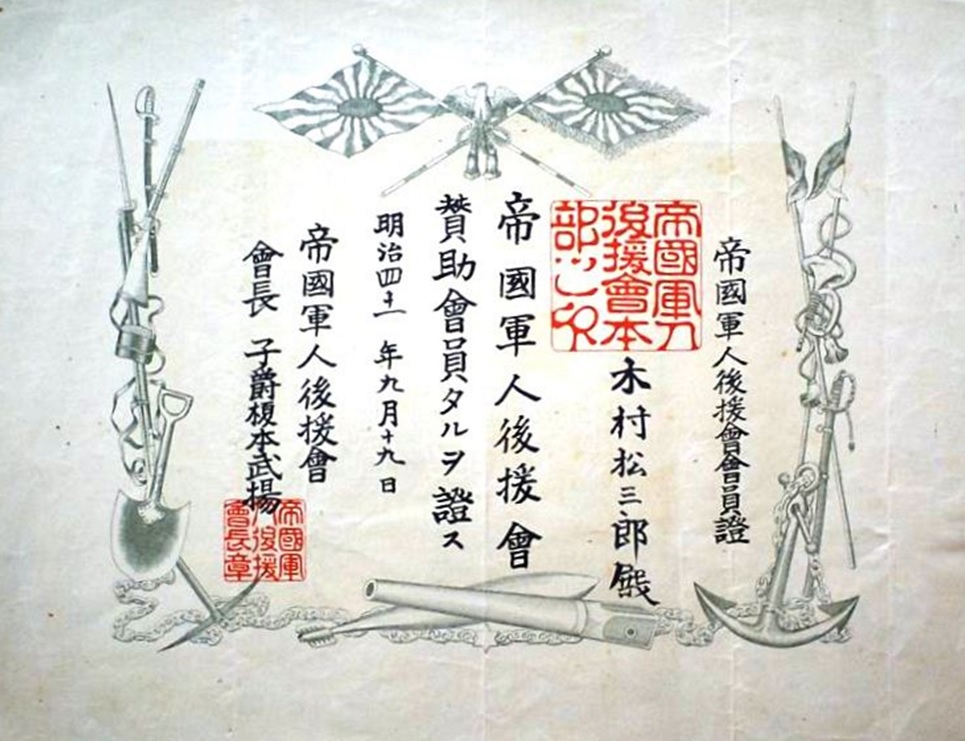 帝國軍人後援會會員證
木村松三郎殿
帝國軍人
後援會本
部之印
帝國軍人後援會
賛助會員タルヲ證ス
明治四十一年九月十九日
帝國軍人後援會
會長 子爵榎本武揚
帝國軍
人後援
會長章